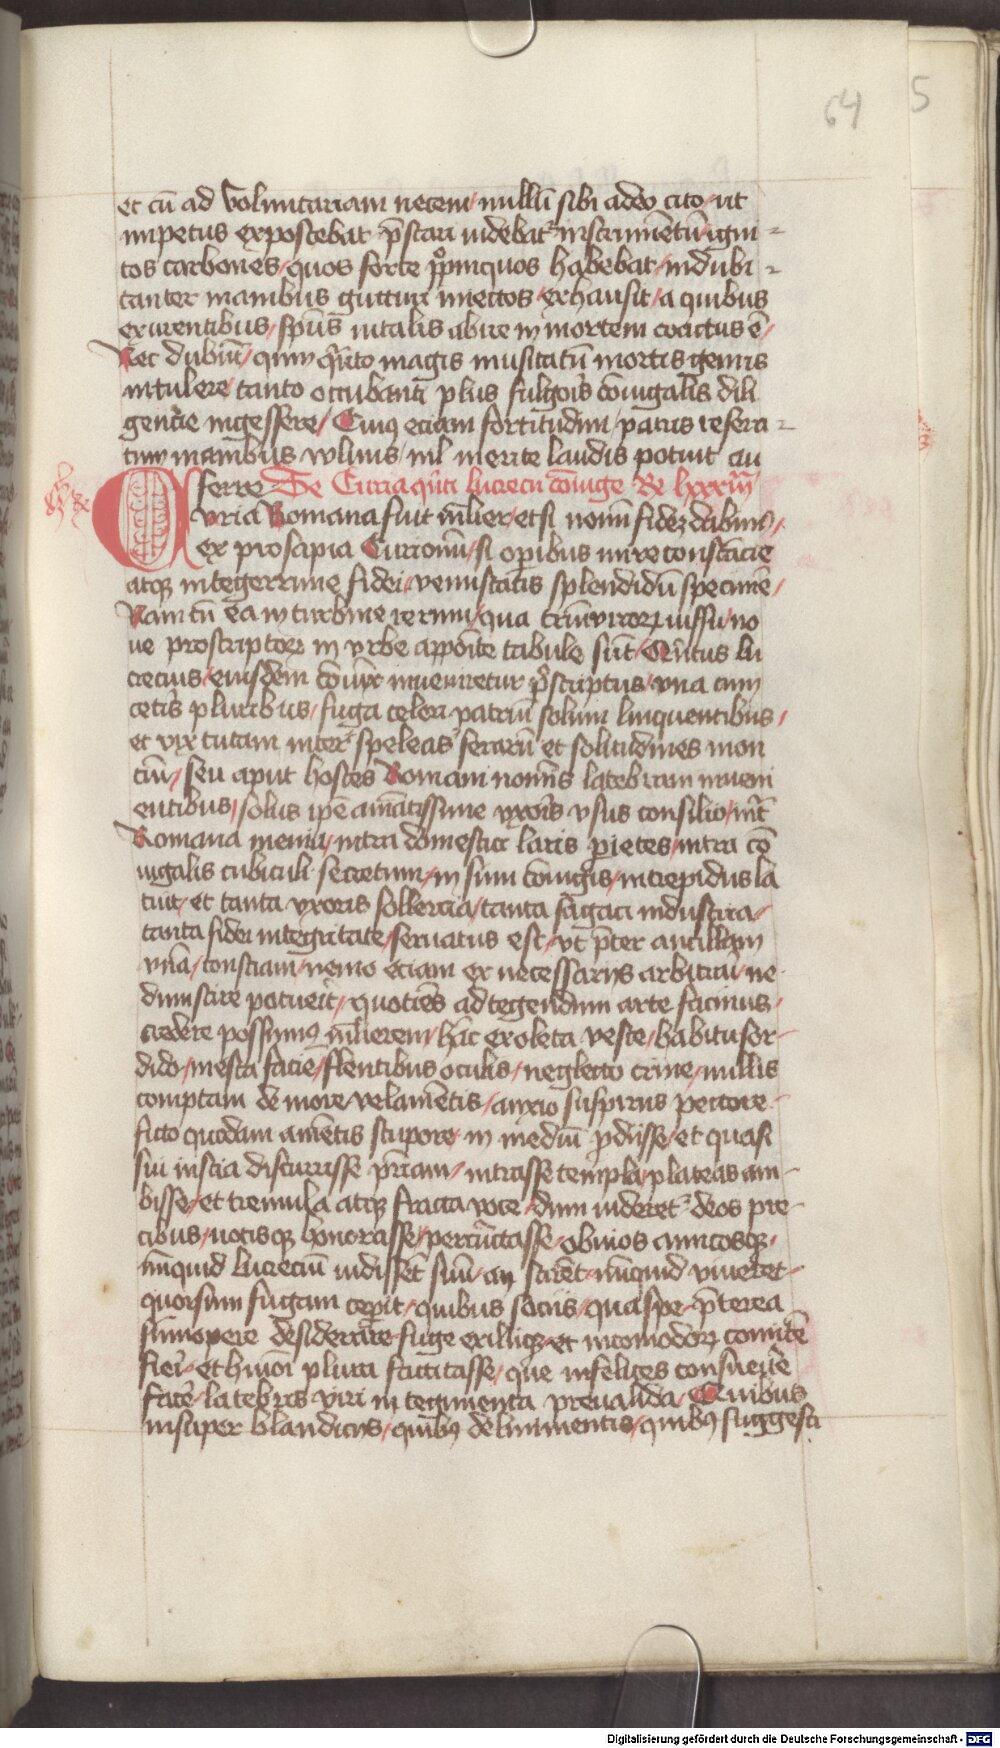 64
5
et cū ad voluntariam necem / nullū sibi adeo cito / ut
impetus expostebat p̄stari uidebat᷑ instrumētū / igni =
tos carbones / quos forte ꝓpinquos habebat / indubi =
tanter manibus gutturi iniectos / exhausit / a quibus
exurentibus / spūs uitalis abire in mortem coactus ē /
Nec dubiū / quin qn̄to magis inusitatū mortis genus
intulere / tanto occubanti plus fulgoris cōiugalis dili
gencie ingessere / Cuius eciam fortitudini / patris refera =
tum manibus vulnus nil merite laudis potuit au
ferre De Curia qn̄ti lucrecii cōiuge Rc lxxxiiī
Curia Romana fuit mulier / etsi nomī fidez dabimꝰ /
ex prosapia Curionū / si opibus mire constācie
atqꝫ integerrime fidei / venustatis splendidū specimē /
Nam cū ea in turbine rerum / qua triūviroꝝ iussu / no
ue proscriptoꝝ in vrbe apposite tabule sūt / Qn̄tus lu
crecius / eiusdem cōiūx inueniretur p̄scriptus / vna cum
ceteris pluribus / fuga celeri patriū solum linquentibus /
et vix tutam inter speleas ferarū et solitudines mon
tiū / seu aput hostes Romani nominis latebram inueni
entibus / solus ipse amātissime vxoris vsus consilio / int᷑
Romana menia / intra domestici laris parietes / intra cō
iugalis cubiculi secretum / in sinu cōiugis / intrepidus la
tuit / et tanta vxoris sollercia / tanta sagaci industria /
tanta fidei integritate / seruatus est / vt p̄ter ancillam
vnā / consciam / nemo eciam ex necessariis arbitrari / ne
dum scire potuerit / quociēs ad tegendum arte facinus /
credere possumꝰ mulierem / hāc exoleta veste / habitu sor-
dido / mesta facie / flentibus oculis / neglecto crine / nullis
comptam de more velamētis / anxio suspiriis pectore -
ficto quodam amētis stupore / in mediū ꝓdijsse / et quasi
sui inscia discurrisse pr̄iam / intrasse templa / plateas am -
bisse / et tremula atqꝫ fracta voce / dum uideret᷑ deos pre -
cibus / uotisqꝫ honorasse / percūctasse / obuios amicosqꝫ /
nūnquid lucreciū uidissēt suū / an scirēt / nūquid viueret -
quorsum fugam cepit / quibus sociis / qua spe / p̄terea
sūmopere desiderare / fuge exiliiqꝫ et incōmodoꝝ comitē
fieri / et hmōi plura factitasse / que infelices consueuē
facē / latebris viri in tegumenta preualida / Quibus
insuper blandiciis / quibꝰ deliniimentis / quibꝰ suggesti
Digitalisierung gefördert durch die Deutsche Forschungsgemeinschaft - DFG